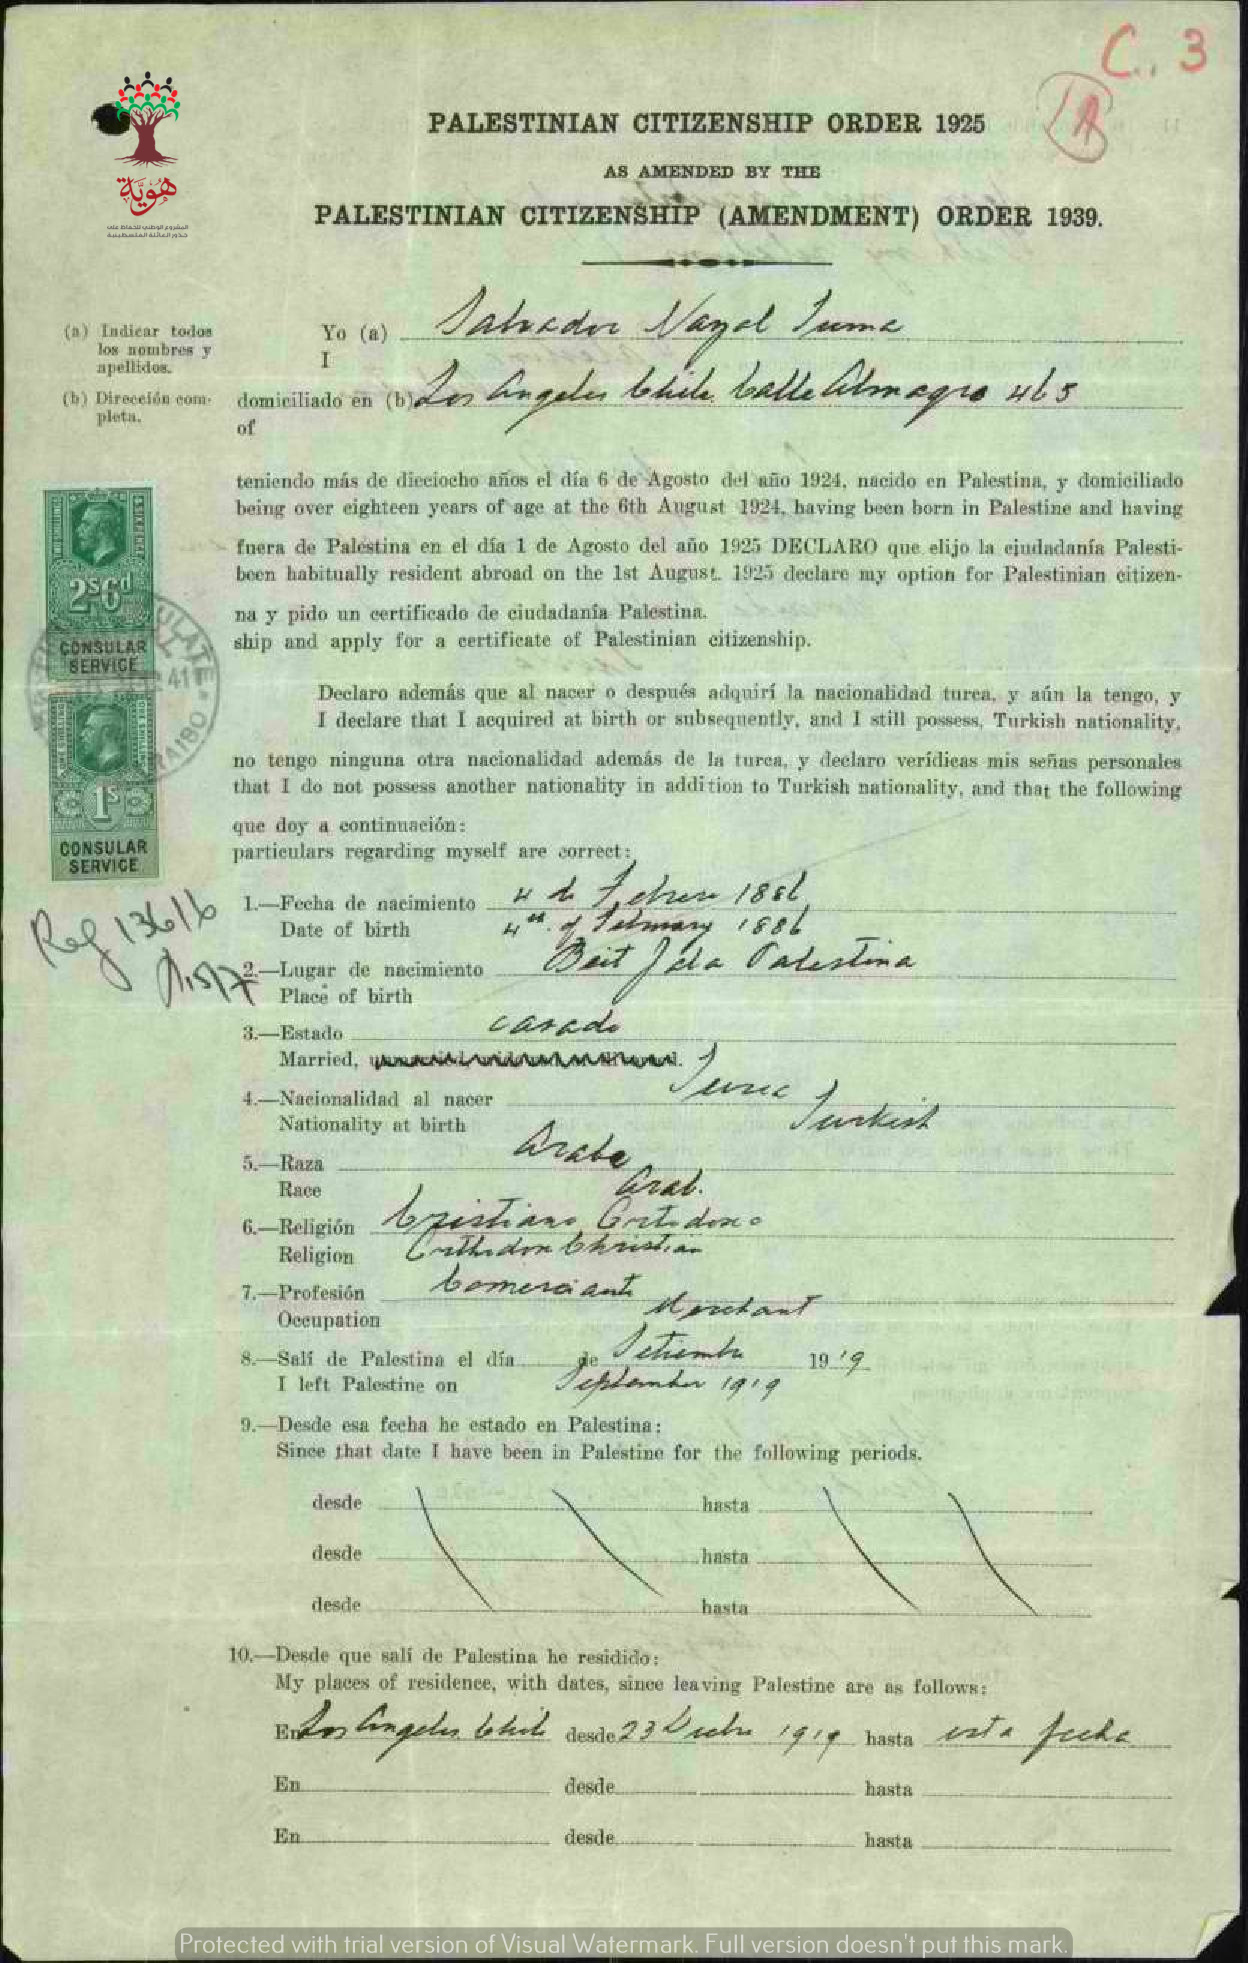 C. 3
A
هوية
المشروع الوطني للحفاظ على
جذور العائلة الفلسطينية
PALESTINIAN CITIZENSHIP ORDER 1925
AS AMENDED BY THE
PALESTINIAN CITIZENSHIP (AMENDMENT) ORDER 1939.
(a) Indicar todos
los nombres y
apellidos.
Yo (a) Salvador Nazal Suma
I
(b) Dirección com-
pleta.
domiciliado en (b) Los Angeles Chile Calle Almagro 465
of
teniendo más de dieciocho años el día 6 de Agosto del año 1924, nacido en Palestina, y domiciliado
being over eighteen years of age at the 6th August 1924, having been born in Palestine and having
fuera de Palestina en el día 1 de Agosto del año 1925 DECLARO que elijo la ciudadanía Palesti-
been habitually resident abroad on the 1st August. 1925 declare my option for Palestinian citizen-
na y pido un certificado de ciudadanía Palestina.
ship and apply for a certificate of Palestinian citizenship.
2s6d
CONSULAR
SERVICE
41
1s
CONSULAR
SERVICE
Declaro además que al nacer o después adquirí la nacionalidad turca, y aún la tengo, y
I declare that I acquired at birth or subsequently, and I still possess, Turkish nationality,
no tengo ninguna otra nacionalidad además de la turca, y declaro verídicas mis señas personales
that I do not possess another nationality in addition to Turkish nationality, and that the following
que doy a continuación:
particulars regarding myself are correct:
Ref 13616
1.—Fecha de nacimiento 4 de Febrero 1886
Date of birth 4th. of February 1886
2.—Lugar de nacimiento Beit Jala Palestina
Place of birth
3.—Estado casado
Married, unmarried, widowed or divorced.
4.—Nacionalidad al nacer Turca
Nationality at birth Turkish
5.—Raza Arabe
Race Arab.
6.—Religión Cristiano Ortodoxo
Religion Orthodox Christian
7.—Profesión Comerciante
Occupation Merchant
8.—Salí de Palestina el día de Setiembre 1919
I left Palestine on September 1919
9.—Desde esa fecha he estado en Palestina:
Since that date I have been in Palestine for the following periods.
desde hasta
desde hasta
desde hasta
10.—Desde que salí de Palestina he residido:
My places of residence, with dates, since leaving Palestine are as follows:
En Los Angeles Chile desde 23 1919 hasta esta fecha
En desde hasta
En desde hasta
Protected with trial version of Visual Watermark. Full version doesn't put this mark.